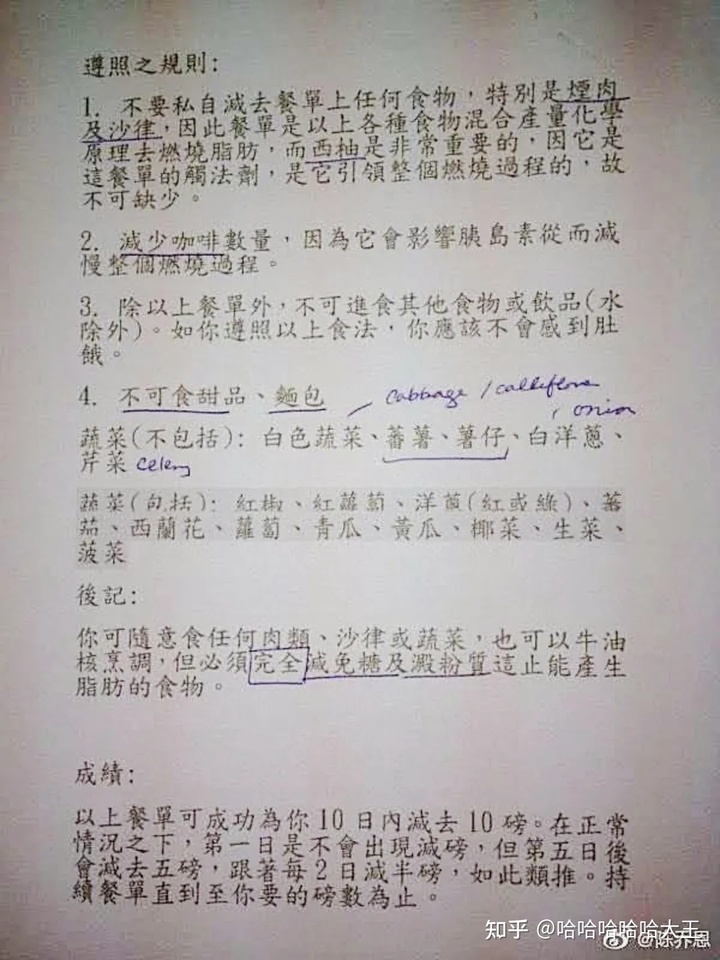 遵照之規則:
1. 不要私自減去餐單上任何食物，特別是煙肉
及沙律，因此餐單是以上各種食物混合產量化學
原理去燃燒脂肪，而西柚是非常重要的，因它是
這餐單的觸法劑，是它引領整個燃燒過程的，故
不可缺少。
2. 減少咖啡數量，因為它會影響胰島素從而減
慢整個燃燒過程。
3. 除以上餐單外，不可進食其他食物或飲品(水
除外)。如你遵照以上食法，你應該不會感到肚
餓。
4. 不可食甜品、麵包
cabbage / califlore
, onion
蔬菜(不包括): 白色蔬菜、蕃薯、薯仔、白洋蔥、
芹菜 Celery
蔬菜(包括): 紅椒、紅蘿蔔、洋蔥(紅或綠)、蕃
茄、西蘭花、蘿蔔、青瓜、黃瓜、椰菜、生菜、
菠菜
後記:
你可隨意食任何肉類、沙律或蔬菜，也可以牛油
核烹調，但必須完全減免糖及澱粉質這止能產生
脂肪的食物。
成績:
以上餐單可成功為你10日內減去10磅。在正常
情況之下，第一日是不會出現減磅，但第五日後
會減去五磅，跟著每2日減半磅，如此類推。持
續餐單直到至你要的磅數為止。
知乎 @哈哈哈哈哈大王
@陈乔恩